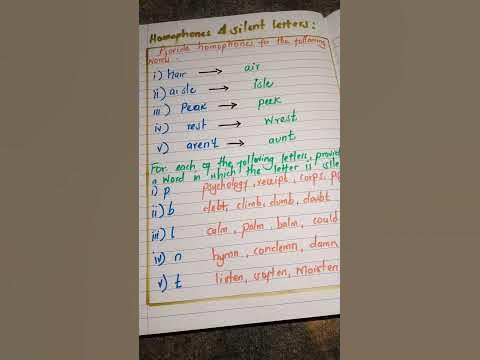 Homophones & silent letters:
Provide homophones for the following
words.
i) hair → air
ii) aisle → isle
iii) Peak → peek
iv) rest → wrest
v) aren't → aunt
For each of the following letters, provide
a word in which the letter is
i) p psychology, receipt, corps,
ii) b debt, climb, dumb, doubt
iii) l calm, palm, balm, could
iv) n hymn, condemn, damn
v) t listen, soften, Moisten